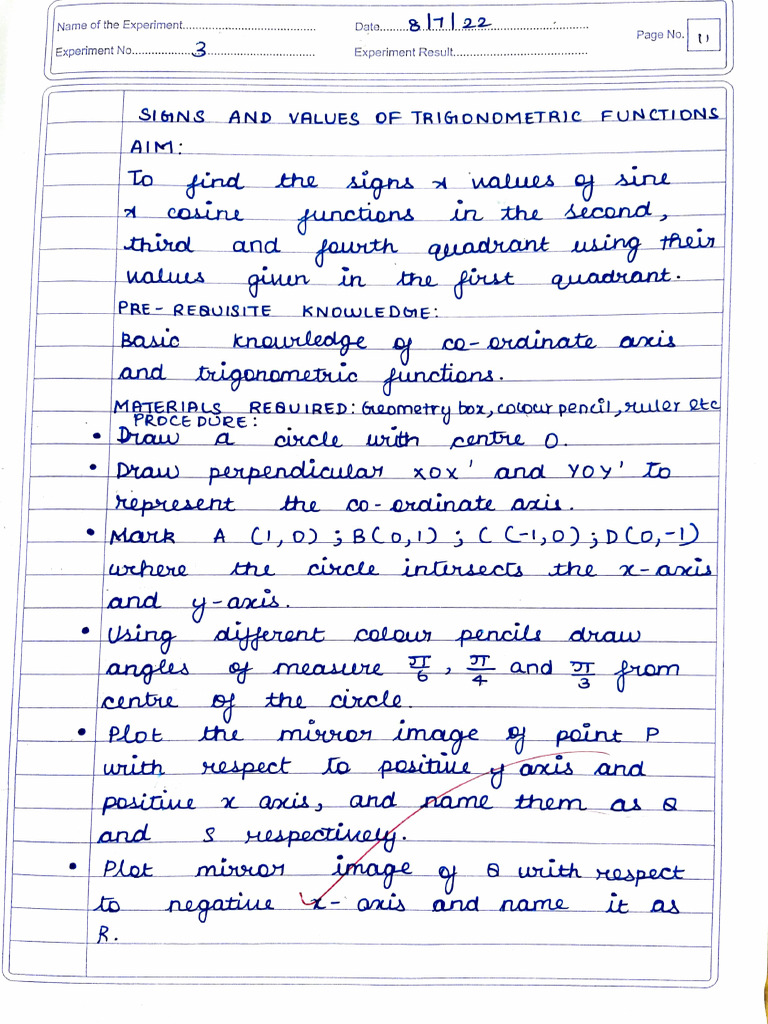 Name of the Experiment............................ Date........8/7/22............................
Page No. 11
Experiment No...............3........................... Experiment Result.......................................
SIGNS AND VALUES OF TRIGIONOMETRIC FUNCTIONS
AIM:
To find the signs & values of sine
& cosine functions in the second,
third and fourth quadrant using their
values given in the first quadrant.
PRE-REQUISITE KNOWLEDGE:
Basic knowledge of co-ordinate axis
and trigonometric functions.
MATERIALS REQUIRED: Geometry box, colour pencil, ruler etc
PROCEDURE:
• Draw a circle with centre O.
• Draw perpendicular XOX' and YOY' to
represent the co-ordinate axis.
• Mark A (1,0) ; B(0,1) ; C (-1,0) ; D(0,-1)
where the circle intersects the x-axis
and y-axis.
• Using different colour pencils draw
angles of measure π/6, π/4 and π/3 from
centre of the circle.
• Plot the mirror image of point P
with respect to positive y axis and
positive x axis, and name them as Q
and S respectively.
• Plot mirror image of Q with respect
to negative x-axis and name it as
R.